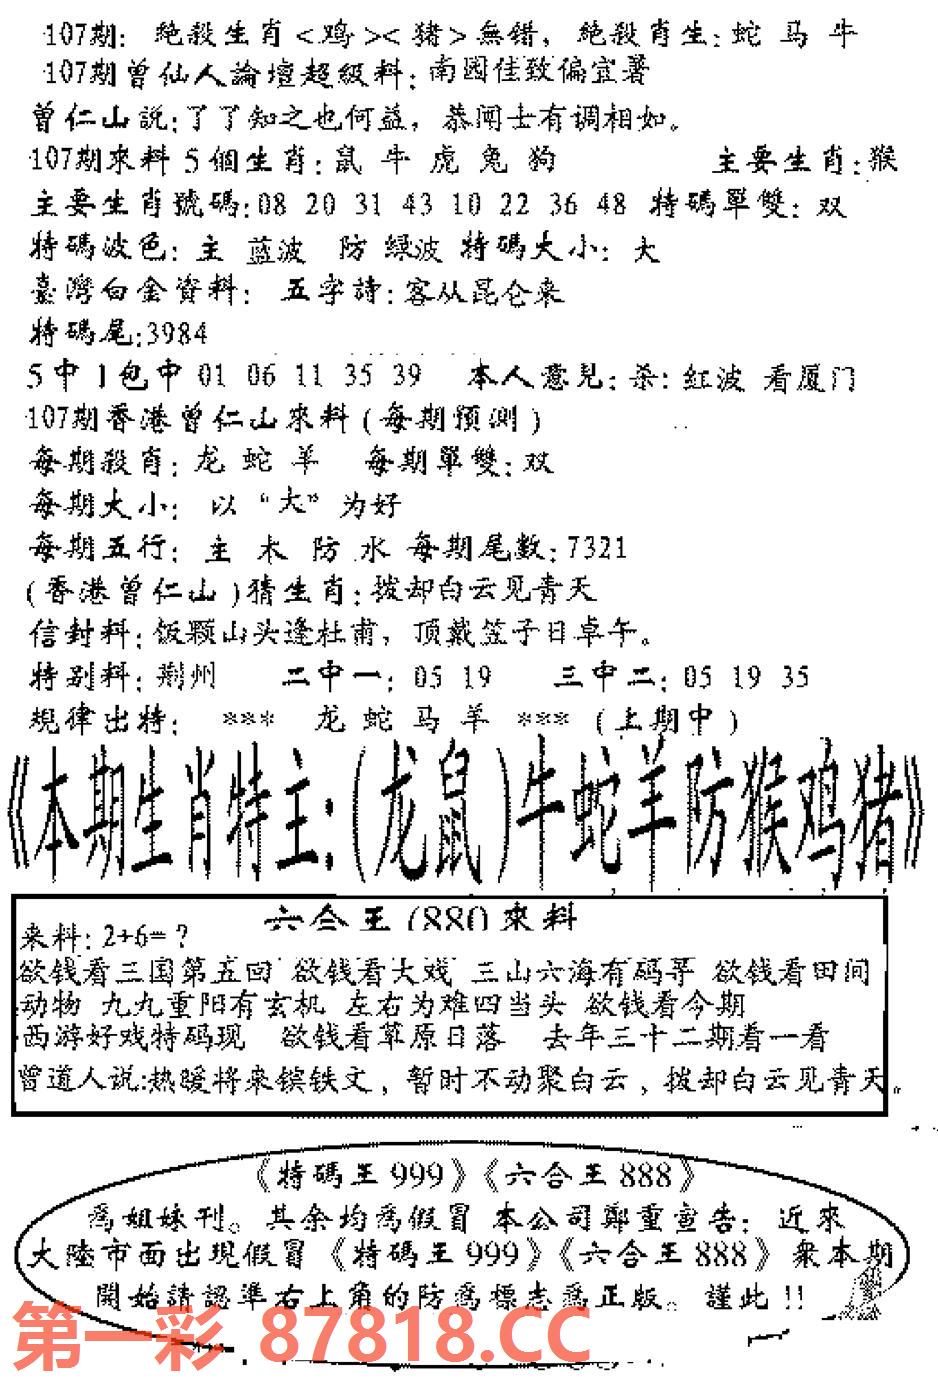 107期: 绝殺生肖<鸡><猪>無错, 绝殺肖生:蛇 马 牛
107期曾仙人論壇超級料:南园佳致偏宜署
曾仁山説:了了知之也何益,恭闻士有调相如。
107期來料 5 個生肖:鼠 牛 虎 兔 狗 主要生肖:猴
主要生肖號碼:08 20 31 43 10 22 36 48 特碼單雙: 双
特碼波色: 主 蓝波 防 绿波 特碼大小: 大
臺灣白金資料: 五字詩:客从昆仑来
特碼尾:3984
5 中 1 包中 01 06 11 35 39 本人意見:杀:红波 看厦门
107期香港曾仁山來料(每期預測)
每期殺肖: 龙 蛇 羊 每期單雙:双
每期大小: 以“大”为好
每期五行: 主 木 防 水 每期尾數:7321
(香港曾仁山)猜生肖:拨却白云见青天
信封料:饭颗山头逢杜甫, 顶戴笠子日卓午。
特别料:荆州 二中一: 05 19 三中二: 05 19 35
規律出特: *** 龙 蛇 马 羊 *** (上期中)
《本期生肖特主:(龙鼠)牛蛇羊防猴鸡猪》
六合王(880)來料
来料: 2+6=?
欲钱看三国第五回 欲钱看大戏 三山六海有码寻 欲钱看田间
动物 九九重阳有玄机 左右为难四当头 欲钱看今期
西游好戏特码现 欲钱看草原日落 去年三十二期看一看
曾道人说:热暖将来镔铁文, 暂时不动聚白云, 拨却白云见青天。
《特碼王 999》《六合王 888》
為姐妹刊。其余均為假冒 本公司鄭重宣告: 近來
大陸市面出現假冒《特碼王 999》《六合王 888》衆本期
開始請認準右上角的防為標志為正版。謹此!!
第一彩 87818.CC